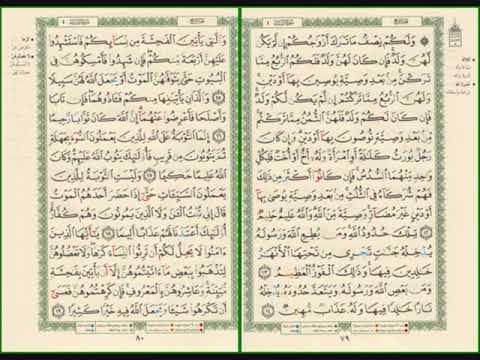 ۞ وَلَكُمْ نِصْفُ مَا تَرَكَ أَزْوَٰجُكُمْ إِن لَّمْ يَكُن
لَّهُنَّ وَلَدٌ فَإِن كَانَ لَهُنَّ وَلَدٌ فَلَكُمُ ٱلرُّبُعُ مِمَّا
تَرَكْنَ مِنۢ بَعْدِ وَصِيَّةٍ يُوصِينَ بِهَآ أَوْ دَيْنٍ
وَلَهُنَّ ٱلرُّبُعُ مِمَّا تَرَكْتُمْ إِن لَّمْ يَكُن لَّكُمْ وَلَدٌ
فَإِن كَانَ لَكُمْ وَلَدٌ فَلَهُنَّ ٱلثُّمُنُ مِمَّا تَرَكْتُم
مِّنۢ بَعْدِ وَصِيَّةٍ تُوصُونَ بِهَآ أَوْ دَيْنٍ وَإِن كَانَ
رَجُلٌ يُورَثُ كَلَٰلَةً أَوِ ٱمْرَأَةٌ وَلَهُۥٓ أَخٌ أَوْ أُخْتٌ فَلِكُلِّ
وَٰحِدٍ مِّنْهُمَا ٱلسُّدُسُ فَإِن كَانُوٓا۟ أَكْثَرَ مِن ذَٰلِكَ
فَهُمْ شُرَكَآءُ فِى ٱلثُّلُثِ مِنۢ بَعْدِ وَصِيَّةٍ يُوصَىٰ بِهَآ
أَوْ دَيْنٍ غَيْرَ مُضَآرٍّ وَصِيَّةً مِّنَ ٱللَّهِ وَٱللَّهُ عَلِيمٌ حَلِيمٌ ١٢
تِلْكَ حُدُودُ ٱللَّهِ وَمَن يُطِعِ ٱللَّهَ وَرَسُولَهُۥ
يُدْخِلْهُ جَنَّٰتٍ تَجْرِى مِن تَحْتِهَا ٱلْأَنْهَٰرُ
خَٰلِدِينَ فِيهَا وَذَٰلِكَ ٱلْفَوْزُ ٱلْعَظِيمُ ١٣
وَمَن يَعْصِ ٱللَّهَ وَرَسُولَهُۥ وَيَتَعَدَّ حُدُودَهُۥ يُدْخِلْهُ
نَارًا خَٰلِدًا فِيهَا وَلَهُۥ عَذَابٌ مُّهِينٌ ١٤
٧٩
وَٱلَّٰتِى يَأْتِينَ ٱلْفَٰحِشَةَ مِن نِّسَآئِكُمْ فَٱسْتَشْهِدُوا۟
عَلَيْهِنَّ أَرْبَعَةً مِّنكُمْ فَإِن شَهِدُوا۟ فَأَمْسِكُوهُنَّ فِى
ٱلْبُيُوتِ حَتَّىٰ يَتَوَفَّىٰهُنَّ ٱلْمَوْتُ أَوْ يَجْعَلَ ٱللَّهُ لَهُنَّ سَبِيلًا
١٥ وَٱلَّذَانِ يَأْتِيَٰنِهَا مِنكُمْ فَـَٔاذُوهُمَا فَإِن تَابَا
وَأَصْلَحَا فَأَعْرِضُوا۟ عَنْهُمَآ إِنَّ ٱللَّهَ كَانَ تَوَّابًا رَّحِيمًا
١٦ إِنَّمَا ٱلتَّوْبَةُ عَلَى ٱللَّهِ لِلَّذِينَ يَعْمَلُونَ ٱلسُّوٓءَ بِجَهَٰلَةٍ
ثُمَّ يَتُوبُونَ مِن قَرِيبٍ فَأُو۟لَٰٓئِكَ يَتُوبُ ٱللَّهُ عَلَيْهِمْ وَكَانَ ٱللَّهُ
عَلِيمًا حَكِيمًا ١٧ وَلَيْسَتِ ٱلتَّوْبَةُ لِلَّذِينَ
يَعْمَلُونَ ٱلسَّيِّـَٔاتِ حَتَّىٰٓ إِذَا حَضَرَ أَحَدَهُمُ ٱلْمَوْتُ
قَالَ إِنِّى تُبْتُ ٱلْـَٰٔنَ وَلَا ٱلَّذِينَ يَمُوتُونَ وَهُمْ كُفَّارٌ
أُو۟لَٰٓئِكَ أَعْتَدْنَا لَهُمْ عَذَابًا أَلِيمًا ١٨ يَٰٓأَيُّهَا ٱلَّذِينَ
ءَامَنُوا۟ لَا يَحِلُّ لَكُمْ أَن تَرِثُوا۟ ٱلنِّسَآءَ كَرْهًا وَلَا تَعْضُلُوهُنَّ
لِتَذْهَبُوا۟ بِبَعْضِ مَآ ءَاتَيْتُمُوهُنَّ إِلَّآ أَن يَأْتِينَ بِفَٰحِشَةٍ
مُّبَيِّنَةٍ وَعَاشِرُوهُنَّ بِٱلْمَعْرُوفِ فَإِن كَرِهْتُمُوهُنَّ فَعَسَىٰٓ
أَن تَكْرَهُوا۟ شَيْـًٔا وَيَجْعَلَ ٱللَّهُ فِيهِ خَيْرًا كَثِيرًا ١٩
٨٠